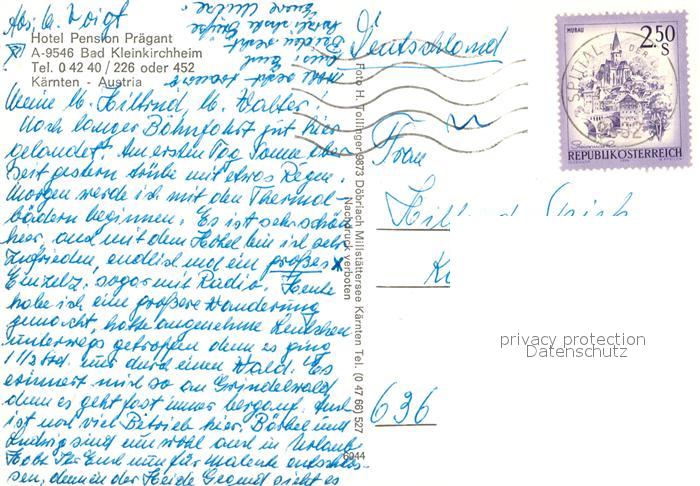 Abs. G. Voigt
Hotel Pension Prägant
A-9546 Bad Kleinkirchheim
Tel. 0 42 40 / 226 oder 452
Kärnten - Austria
Meine lb. Hiltrud, lb. Walter!
Nach langer Bahnfahrt gut hier
gelandet. Am ersten Tag Sonne, aber
seit gestern trübe mit etwas Regen.
Morgen werde ich mit den Thermal-
bädern beginnen. Es ist sehr schön
hier, und mit dem Hotel bin ich sehr
zufrieden, endlich mal ein großes
Einzelz., sogar mit Radio. Heute
habe ich eine größere Wanderung
gemacht, hatte angenehme Menschen
unterwegs getroffen denn es ging
1 1/2 Std. nur durch einen Wald. Es
erinnert mich so an Grindelwald
denn es geht fast immer bergauf. Auch
ist noch viel Betrieb hier. Bärbel und
Ludwig sind nun wohl auch in Urlaub.
Habt Ihr Euch nun für Malente entschlos-
sen, denn in der Heide Gegend sieht es
Foto H. Tollinger 9873 Döbriach Millstättersee Kärnten Tel. (0 47 66) 527
Nachdruck verboten
6944
Deutschland
Frau
636
MURAU
2.50
S
REPUBLIK ÖSTERREICH
SPITTAL
privacy protection
Datenschutz